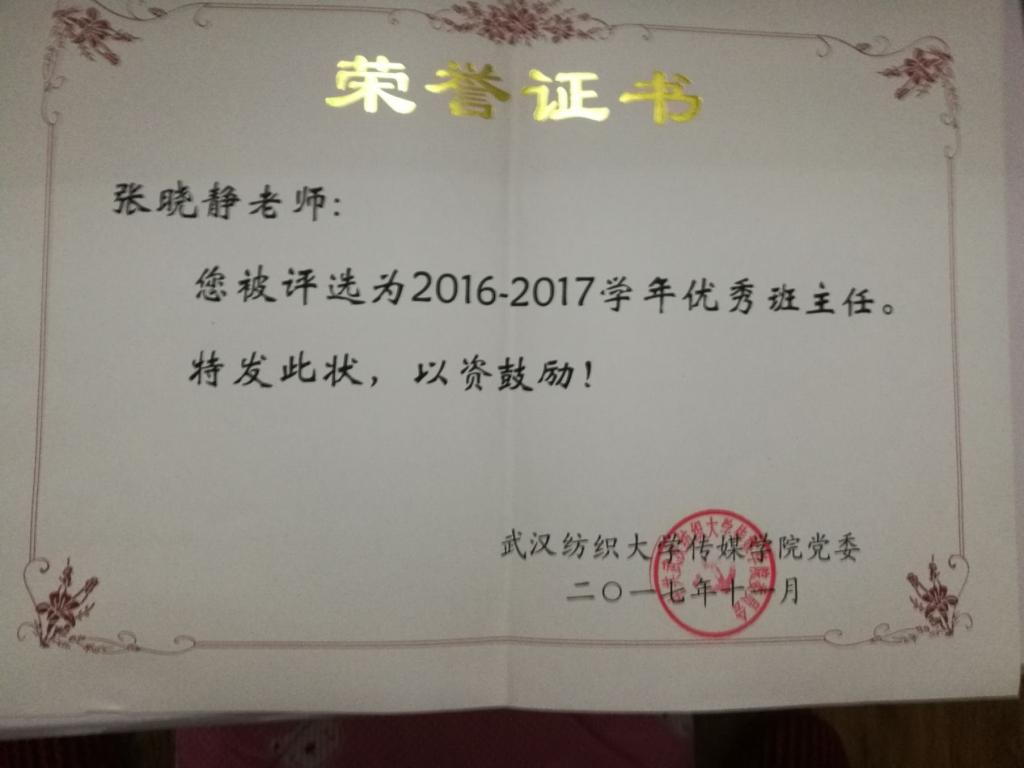 荣誉证书
张晓静老师:
您被评选为2016-2017学年优秀班主任。
特发此状，以资鼓励!
武汉纺织大学传媒学院党委
二〇一七年十一月